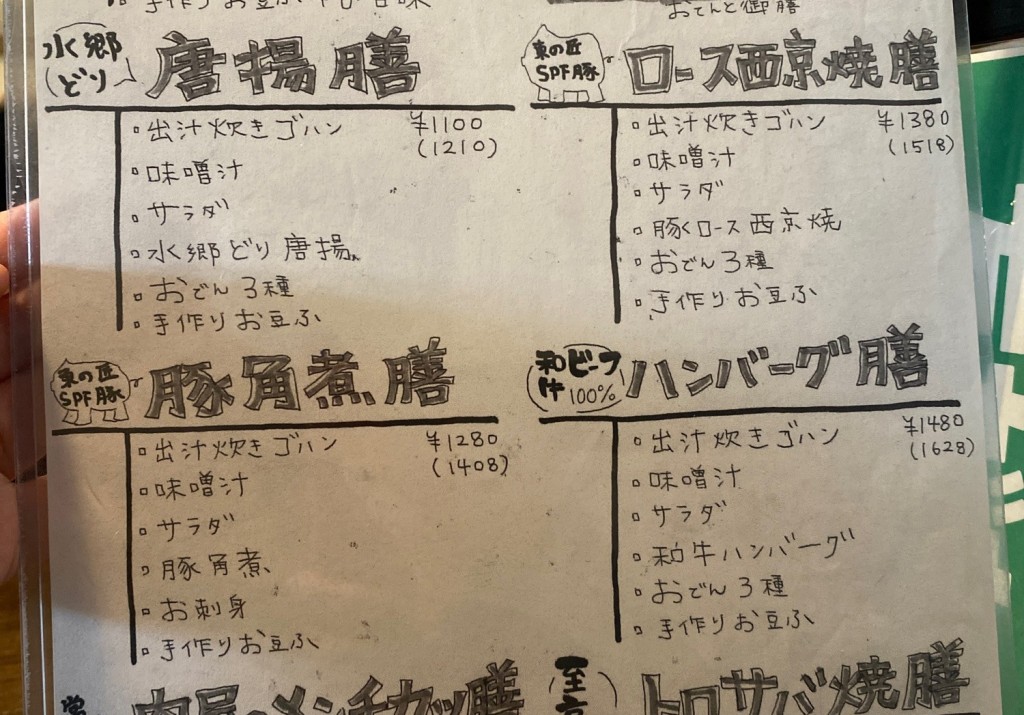 おでんと御膳
水郷どり 唐揚膳
▫出汁炊きゴハン ¥1100
(1210)
▫味噌汁
▫サラダ
▫水郷どり唐揚
▫おでん3種
▫手作りお豆ふ
東の匠SPF豚 ロース西京焼膳
▫出汁炊きゴハン ¥1380
(1518)
▫味噌汁
▫サラダ
▫豚ロース西京焼
▫おでん3種
▫手作りお豆ふ
東の匠SPF豚 豚角煮膳
▫出汁炊きゴハン ¥1280
(1408)
▫味噌汁
▫サラダ
▫豚角煮
▫お刺身
▫手作りお豆ふ
和牛ビーフ100% ハンバーグ膳
▫出汁炊きゴハン ¥1480
(1628)
▫味噌汁
▫サラダ
▫和牛ハンバーグ
▫おでん3種
▫手作りお豆ふ
メンチカツ膳
トロサバ焼膳